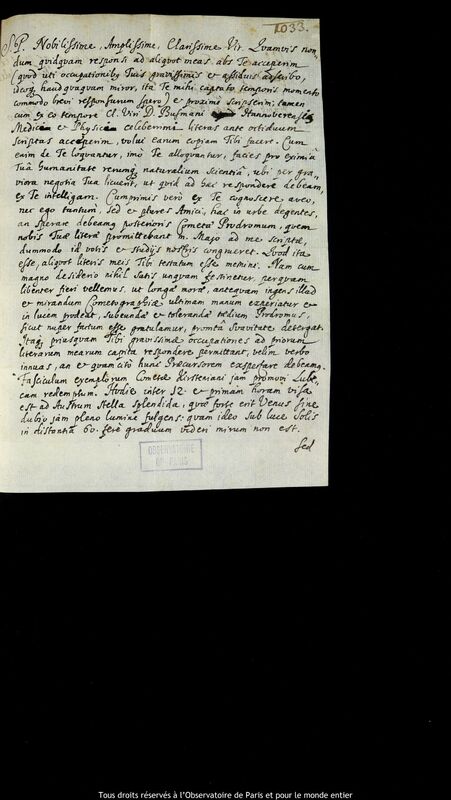 1033.
S.P. Nobilissime, Amplissime, Clarissime Vir. Quamvis non„
dum quidquam responsi ad aliquot meas abs Te acceperim
(quod uti occupationibq Tuis gravissimis et assiduis adscribo,
idcirq haudquaquam miror, ita Te mihi captato temporis momento
commodo brevi responsurum spero) et proxime scripserim; tamen
cum ex eo tempore Cl. Viri D. Busmani Hannoverensis
Medici et Physici celeberrimi literas ante octiduum
scriptas acceperim, volui earum copiam Tibi facere. Cum
enim de Te loquantur, imò Te alloquantur, facies pro eximia
Tua humanitate rerumq naturalium scientia, ubi per gra„
viora negotia Tua licuerit, ut quid ad has respondere debeam,
ex Te intelligam. Cumprimis verò ex Te cognoscere aveo,
nec ego tantùm, sed et plures Amici, hac in urbe degentes,
an sperare debeamq posterioris Cometæ Prodromum, quem
nobis Tuæ literæ promittebant m. Majo ad me scriptæ,
dummodo id votis et studijs nostris congrueret. Quod ita
esse, aliquot literis meis Tibi testatum esse memini. Nam cum
magno desiderio nihil satis unquam festinetur, perquam
libenter fieri vellemus, ut longæ moræ, antequam ingens illud
et mirandum Cometographiæ ultimam manum experiatur et
in lucem prodeat, subeundæ et tolerandæ tædium Prodromus,
sicut nuper factum esse gratulamur, promta suavitate detergat.
Itaq, priusquam Tibi gravissimæ occupationes ad priorum
literarum mearum capita respondere permittant, velim verbo
innuas, an et quam citò hunc Præcursorem exspectare debeamq.
Fasciculum exemplorum Cometæ Kirsteniani jam promovi Lube„
cam redemtum. Hodie inter 12. et primam horam visa
est ad Austrum stella splendida, quæ forte erit Venus sine
dubio jam pleno lumine fulgens: quam ideo sub luce Solis
in distantia 60. ferè graduum videri mirum non est.
Sed
OBSERVATOIRE
DE PARIS
Tous droits réservés à l'Observatoire de Paris et pour le monde entier